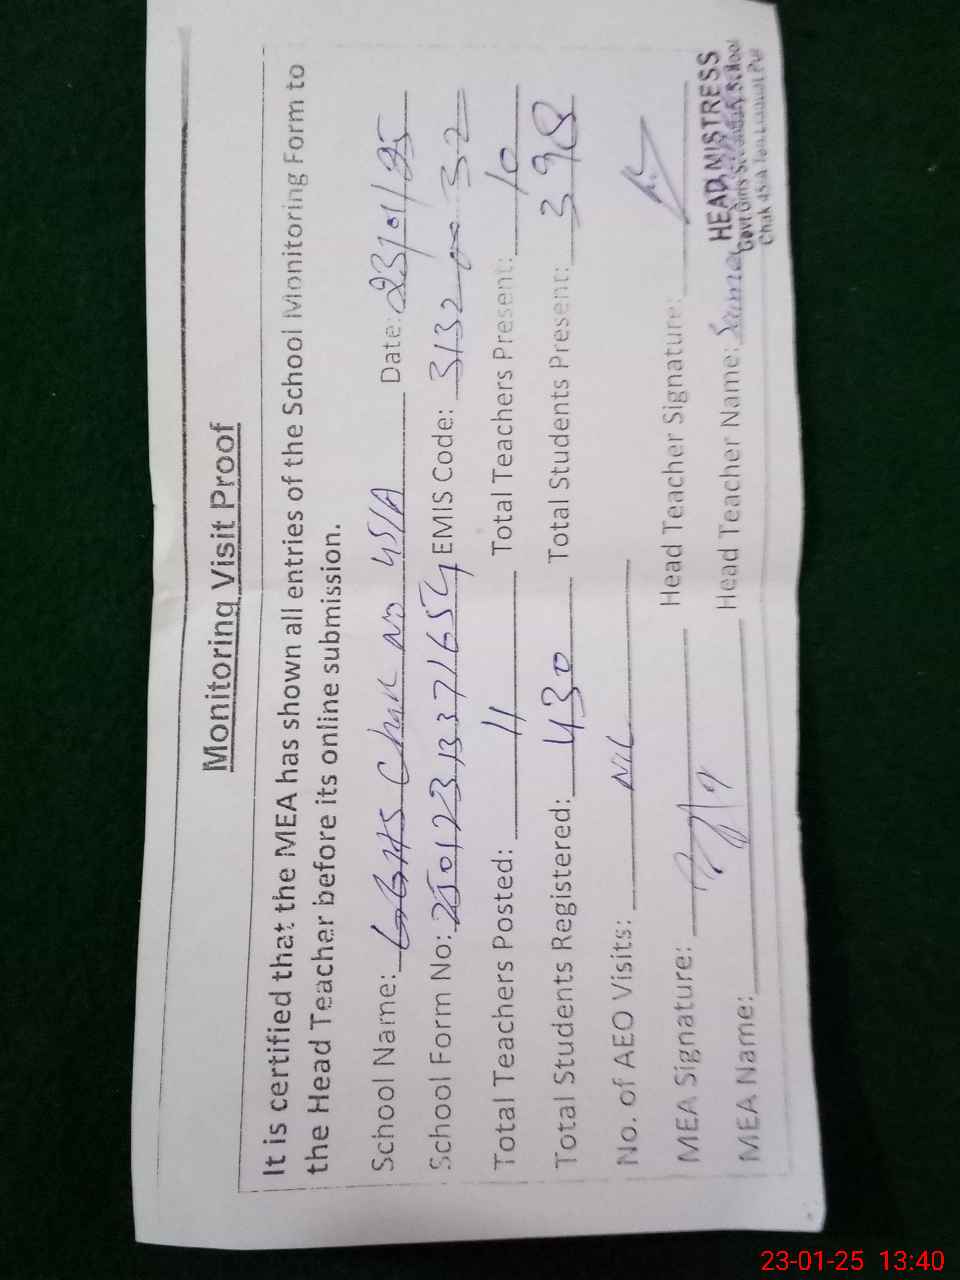 Monitoring Visit Proof
It is certified that the MEA has shown all entries of the School Monitoring Form to
the Head Teacher before its online submission.
School Name: GGHS Chak No 45/A Date: 23/01/25
School Form No: 250123133771654 EMIS Code: 31320032
Total Teachers Posted: 11 Total Teachers Present: 10
Total Students Registered: 430 Total Students Present: 398
No. of AEO Visits: Nil
MEA Signature: Head Teacher Signature:
MEA Name: Head Teacher Name:
HEAD MISTRESS
Govt Girls School
Chak 45/A
23-01-25 13:40